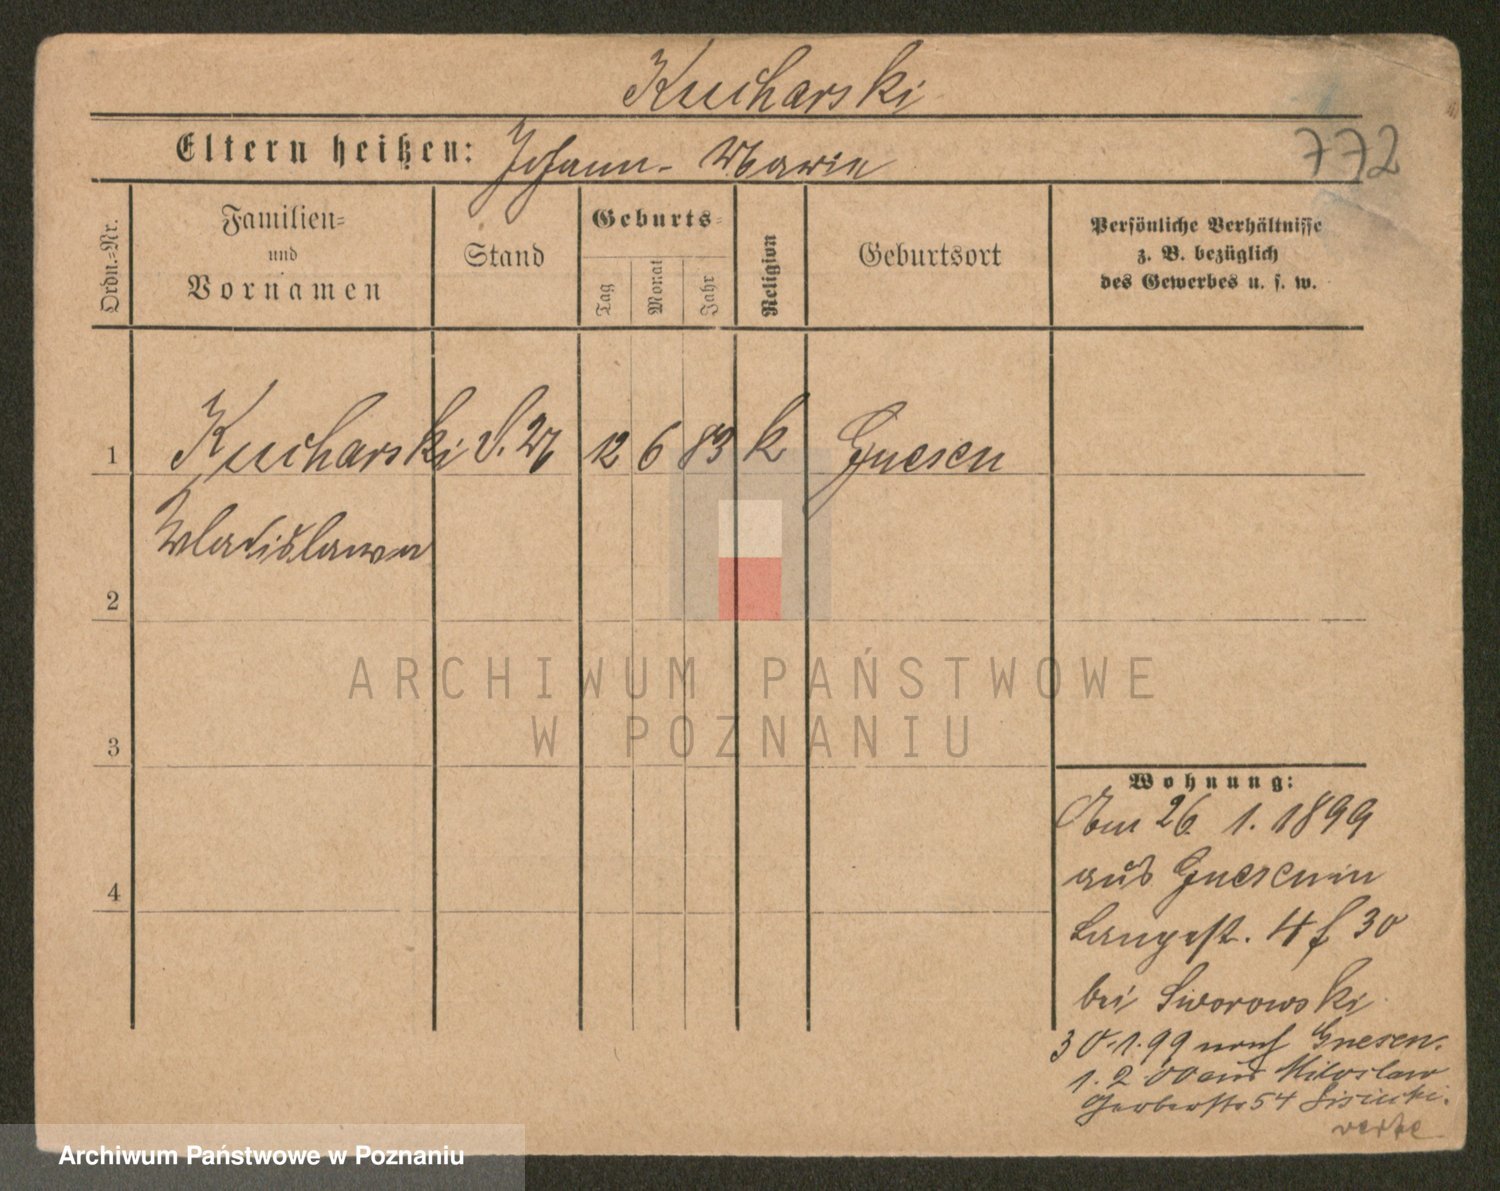 Kucharski
Eltern heißen: Johann - Marie
772
Ordn.=Nr.
Familien=
und
Vornamen
Stand
Geburts=
Tag
Monat
Jahr
Religion
Geburtsort
Persönliche Verhältnisse
z. B. bezüglich
des Gewerbes u. s. w.
1 Kucharski 12 6 83 k Gnesen
Wladislawa
2
3
4
ARCHIWUM PAŃSTWOWE
W POZNANIU
Wohnung:
Am 26 1. 1899
aus Gnesen in
Langest. 4 f 30
bei Sworowski
30.1.99 nach Gnesen.
1. 2 00 aus Miloslaw
Gerberstr 54
Archiwum Państwowe w Poznaniu